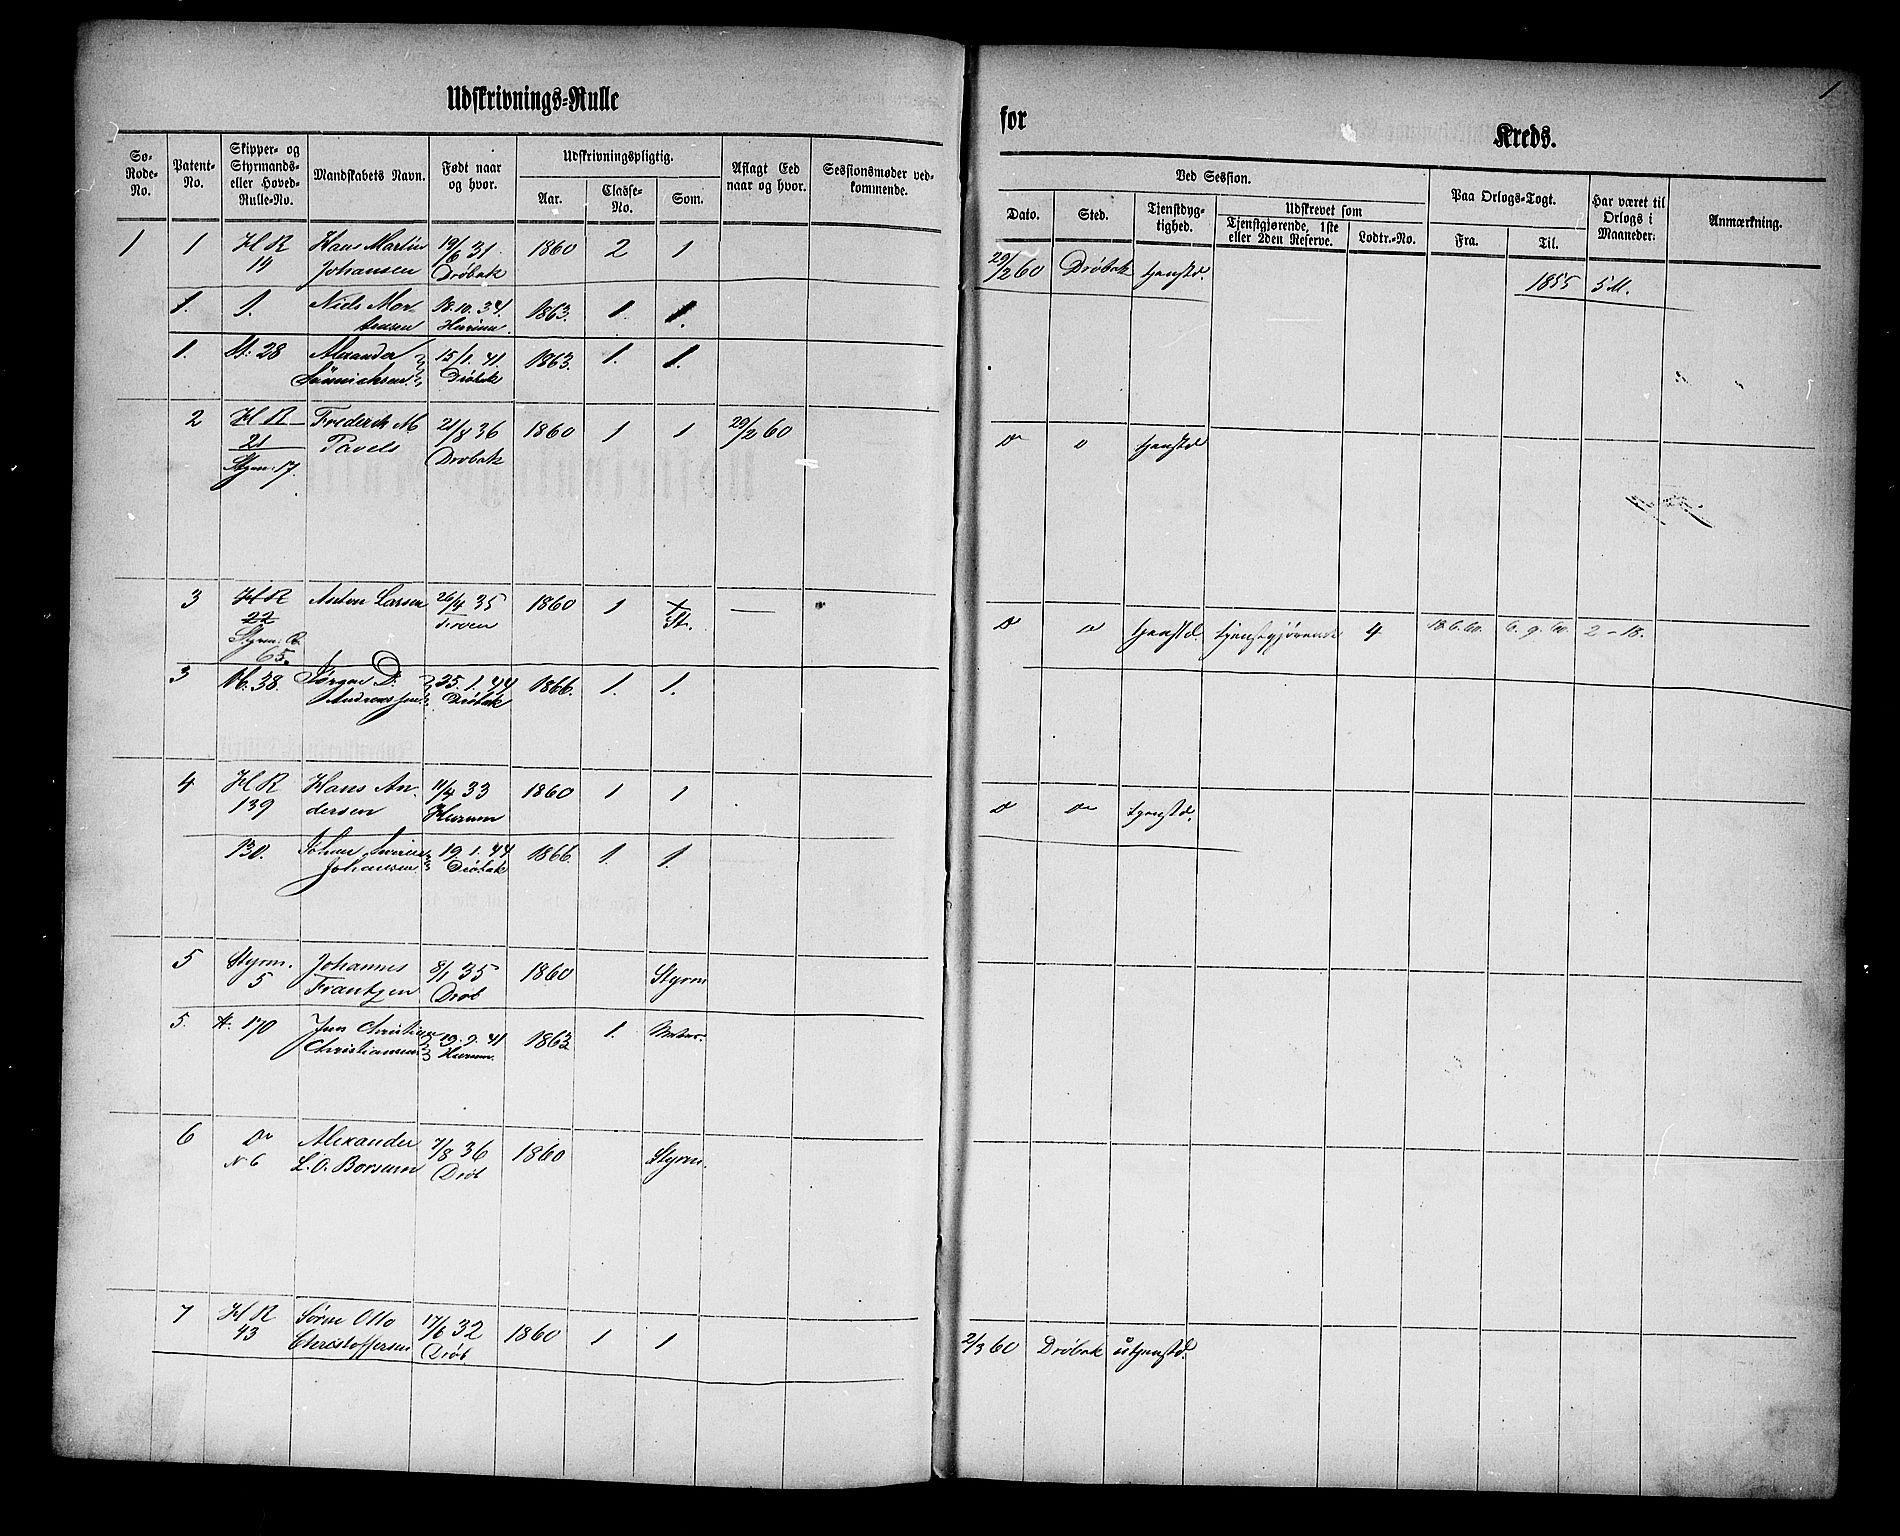 1
Udskrivnings-Rulle
for
Kreds.
Sø-Rode-No.
Patent-No.
Skipper- og Styrmands- eller Hoved-Rulle-No.
Mandskabets Navn.
Født naar og hvor.
Udskrivningspligtig.
Aar.
Classe-No.
Som.
Aflagt Eed naar og hvor.
Sessionsmøder vedkommende.
Ved Session.
Dato.
Sted.
Tjenstdygtighed.
Udskrevet som
Tjenstgjørende, 1ste eller 2den Reserve.
Lodtr.-No.
Paa Orlogs-Togt.
Fra.
Til.
Har været til Orlogs i Maaneder.
Anmærkning.
1 1 H R Hans Martin 19/6 31 1860 2 1 29/2 60 Drøbak tjenstd. 1855 5 M.
19 Johansen Drøbak
1. 1. Niels Mor- 18.10.34. 1863. 1. 1.
tensen Hurum.
1. 28 Alexander 15/1. 41. 1863. 1. 1.
Drøbak
2 H R Frederik M 21/8 36 1860 1 1 29/2 60 Do D tjenstd
21 Pavels Drøbak
Styrm. 17.
3 H R Anton Larsen 26/4 35 1860 1 1 — D Do tjenstd. tjenstgjørende 4 18.6.60. 6.9.60. 2-18.
22 St.
Styrm. R.
65.
3 38. Jørgen D. 25.1.44. 1866. 1. 1.
Andreassen Drøbak
4 H R Hans An- 11/4 33 1860 1 1 D Do tjenstd.
139 dersen Hurum
130. Johan 19.1.44. 1866. 1. 1.
Johansen Drøbak
5 Styrm. Johannes 8/1 35 1860 Styrm
5 Frantzen Drøb
5. A. 170 Jens Christian 19.9.41 1863 1.
Christiansen Hurum.
6 Do Alexander 7/8 36 1860 Styrm.
N 6 L. O. Borsum Drøb
7 H R Søren Otto 17/6 32 1860 1 1 2/3 60 Drøbak utjenstd.
43 Christoffersen Drøb